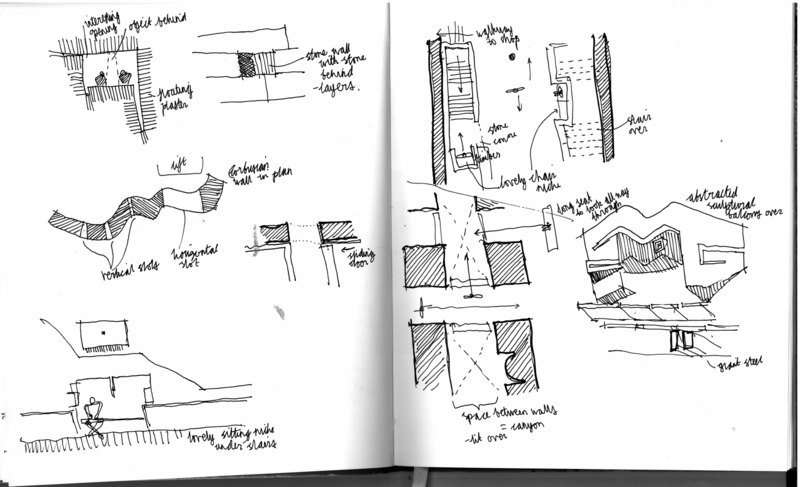 interesting
opening
object behind
floating
plaster
stone wall
with stone
behind
-layers.
lift
Corbusian
wall in plan
vertical slots
horizontal
slot
sliding
door
lovely sitting niche
under stairs
walkway
to shop
stair
over
stone
timber
lovely chair
niche
long seat
to look all way
through
abstracted
sculptural
balcony over
giant steel
space between walls
= canyon
-sit over